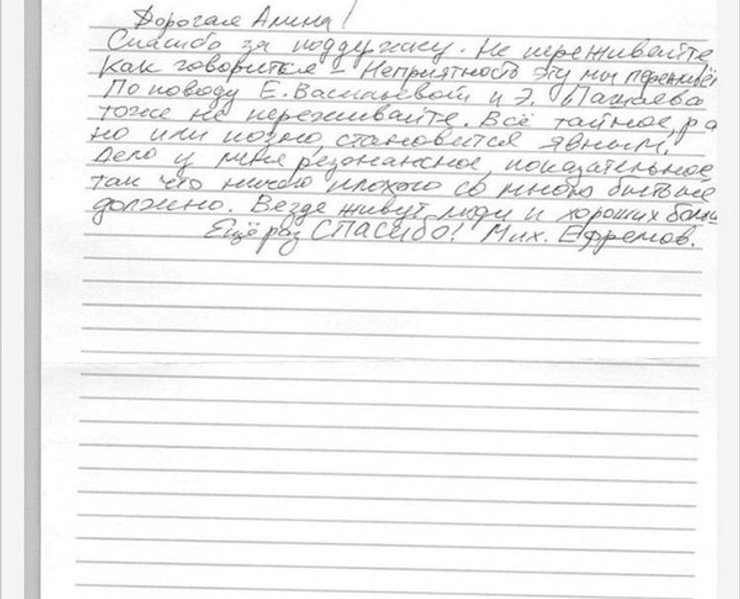 Дорогая Алина!
Спасибо за поддержку. Не переживайте,
Как говорится - Неприятность эту мы переживём
По поводу Е.Васильевой и Э. Пашаева
тоже не переживайте. Всё тайное, ра
но или поздно, становится явным.
Дело у меня резонансное, показательное
так что ничего плохого со мною быть не
должно. Везде живут люди и хороших больш
Ещё раз СПАСИБО! Мих. Ефремов.